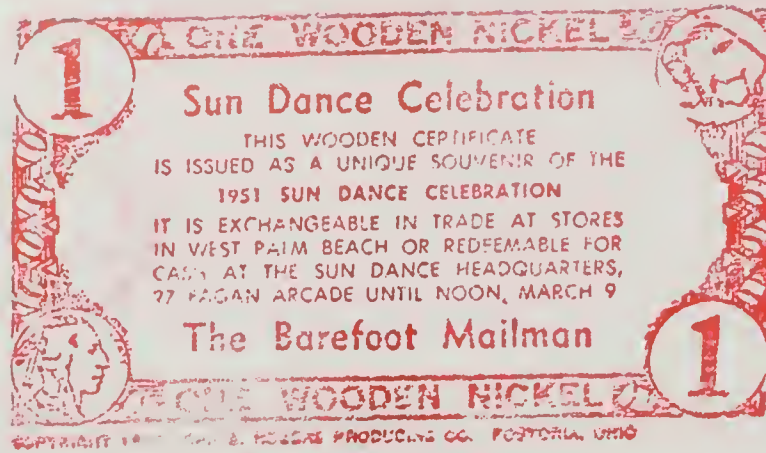 1
ONE WOODEN NICKEL
Sun Dance Celebration
THIS WOODEN CERTIFICATE
IS ISSUED AS A UNIQUE SOUVENIR OF THE
1951 SUN DANCE CELEBRATION
IT IS EXCHANGEABLE IN TRADE AT STORES
IN WEST PALM BEACH OR REDEEMABLE FOR
CASH AT THE SUN DANCE HEADQUARTERS,
FAGAN ARCADE UNTIL NOON, MARCH 9
The Barefoot Mailman
1
ONE WOODEN NICKEL
COPYRIGHT PRODUCING CO. FOSTORIA, OHIO